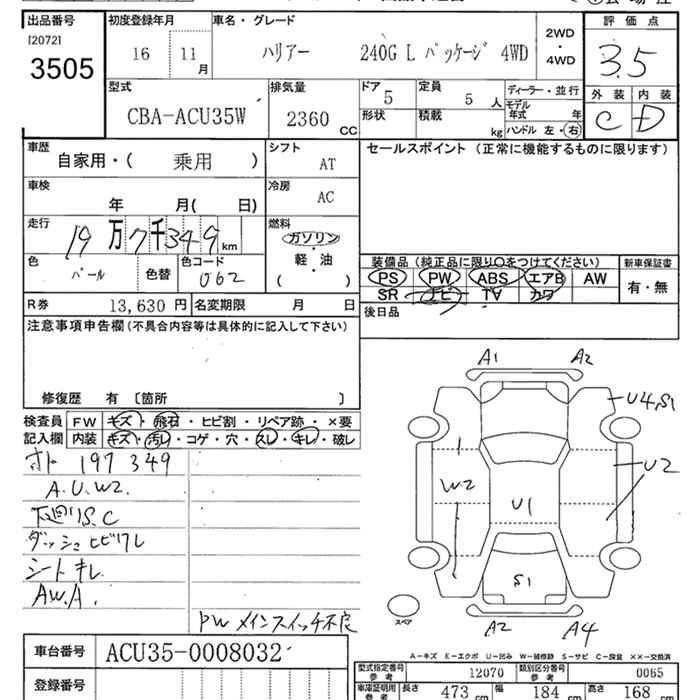 出品番号 初度登録年月 車名・グレード 評価点
[2072] 3505 16 11月 ハリアー 240G L パッケージ 4WD 2WD・4WD 3.5
型式 排気量 ドア 5 定員 5人 ディーラー・並行 外装 内装
CBA-ACU35W 2360 CC 形状 積載 kg モデル年式 年 C D
ハンドル 左・右
車歴 シフト セールスポイント (正常に機能するものに限ります)
自家用・( 乗用 ) AT
車検 冷房
年 月( 日) AC
走行 燃料
19万7千349km ガソリン
色 色コード 軽・油 装備品 (純正品に限り○をつけてください) 新車保証書
パール 色替 062 ( ・ ) PS PW ABS エアB AW 有・無
R券 13,630円 名変期限 月 日 SR ナビ TV カワ
注意事項申告欄(不具合内容等は具体的に記入して下さい) 後日品
修復歴 有 〔箇所 〕
検査員 FW キズ・飛石・ヒビ割・リペア跡・×要
記入欄 内装 キズ・汚レ・コゲ・穴・スレ・キレ・破レ
197349
A.U.W2
下廻りS.C
ダッシュヒビワレ
シートキレ
AW.A.
PWメインスイッチ不良
A1 A2
U4,S1
U2
W2
U1
S1
A2 A4
スペア
A-キズ E-エクボ U-凹み W-補修跡 S-サビ C-腐食 ××-交換済
車台番号 ACU35-0008032 型式指定番号 参考 12070 類別区分番号 参考 0065
登録番号 車庫証明用 参考 長さ 473cm 幅 184cm 高さ 168cm